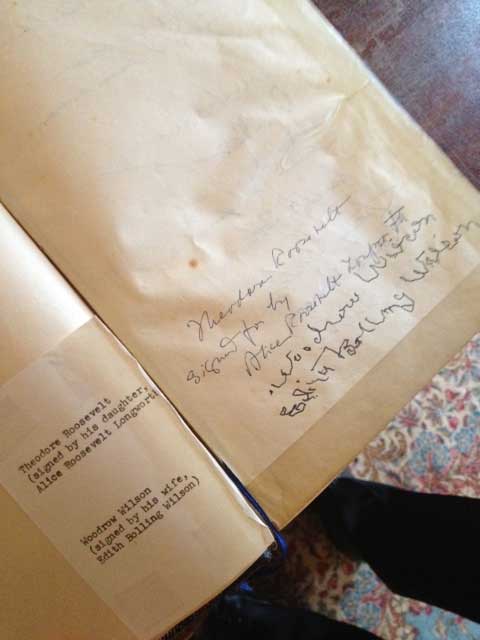 Theodore Roosevelt
signed for by
Alice Roosevelt Longworth
Woodrow Wilson
Edith Bolling Wilson
Theodore Roosevelt
(signed by his daughter,
Alice Roosevelt Longworth
Woodrow Wilson
(signed by his wife,
Edith Bolling Wilson)